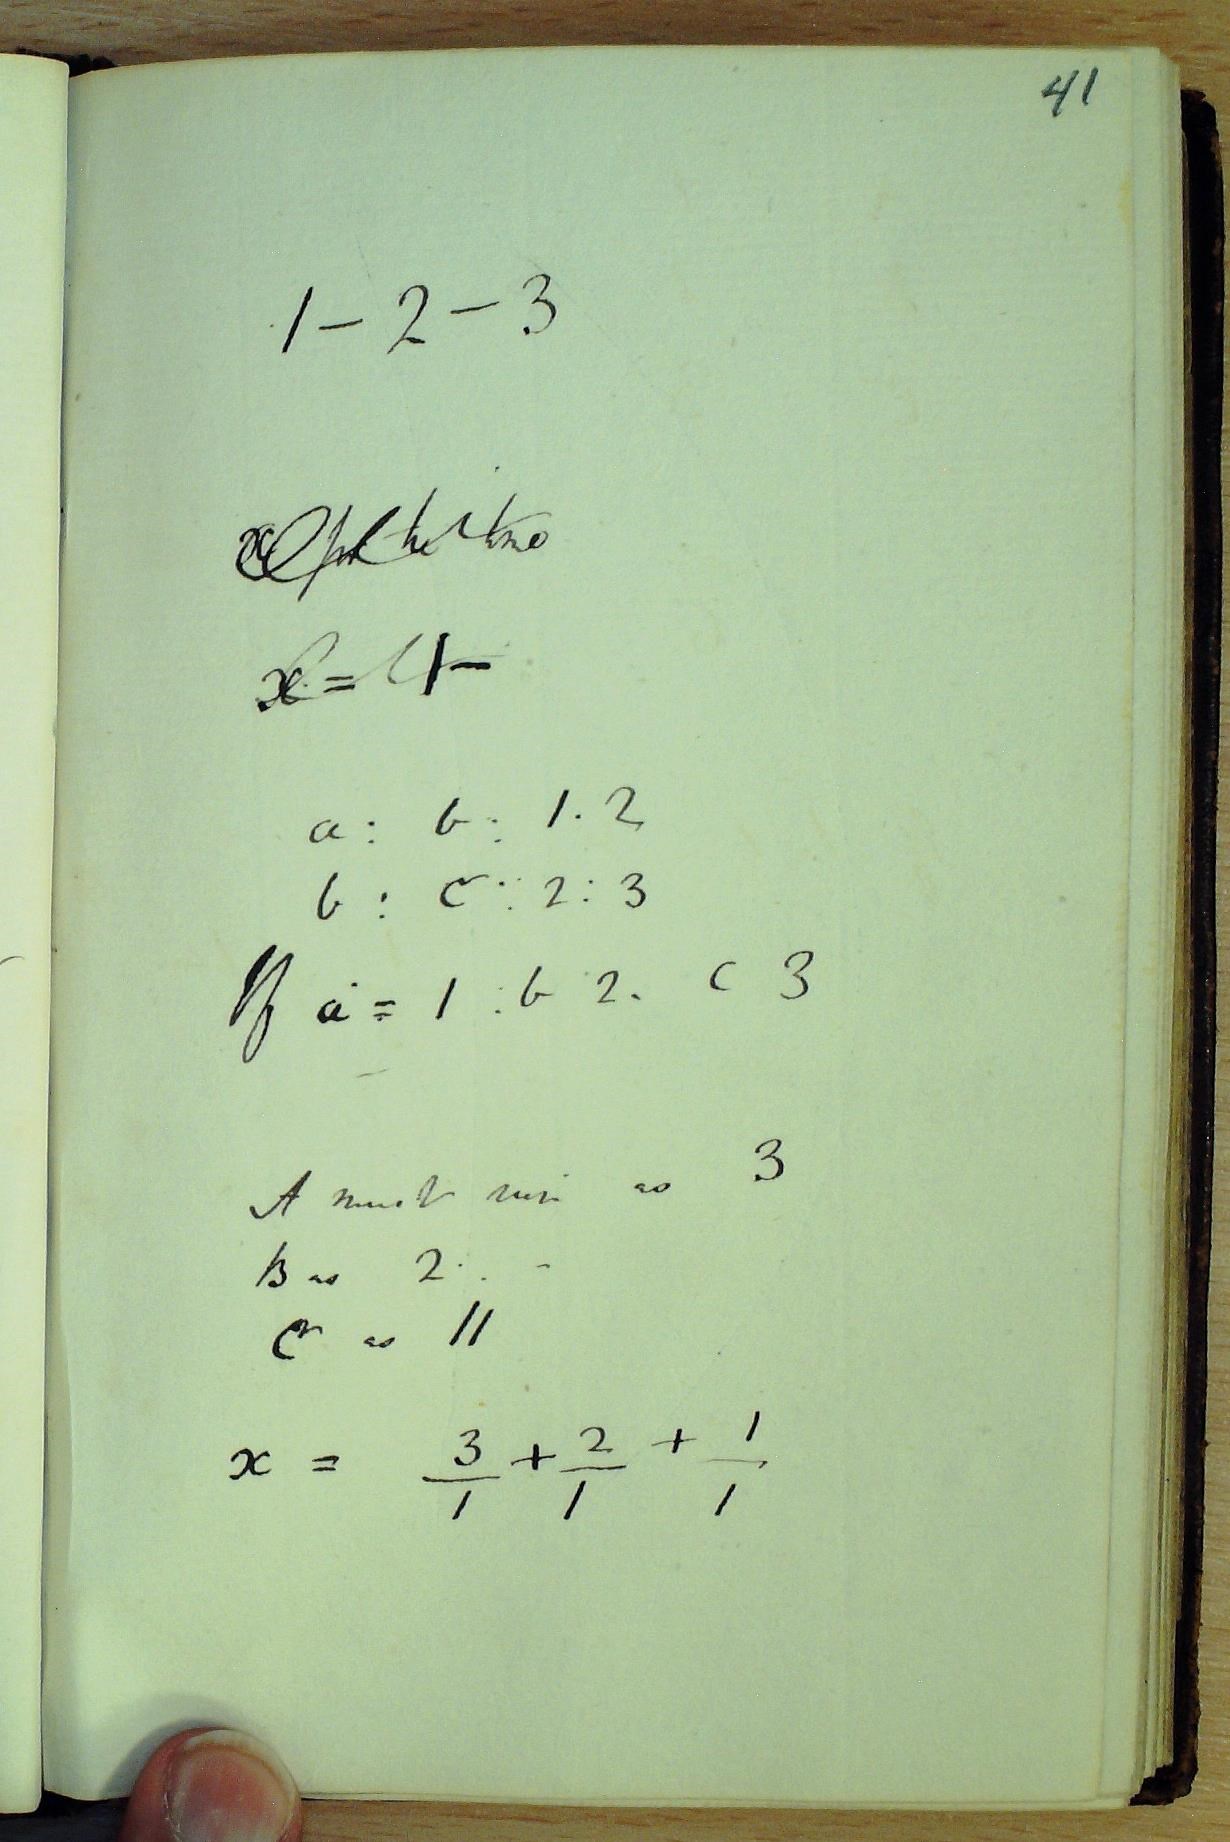 41
1 - 2 - 3
x = 1 -
a : b : 1 . 2
b : c :: 2 : 3
If a = 1 : b 2. c 3
A must run as 3
B as 2
C as 11
x = 3/1 + 2/1 + 1/1